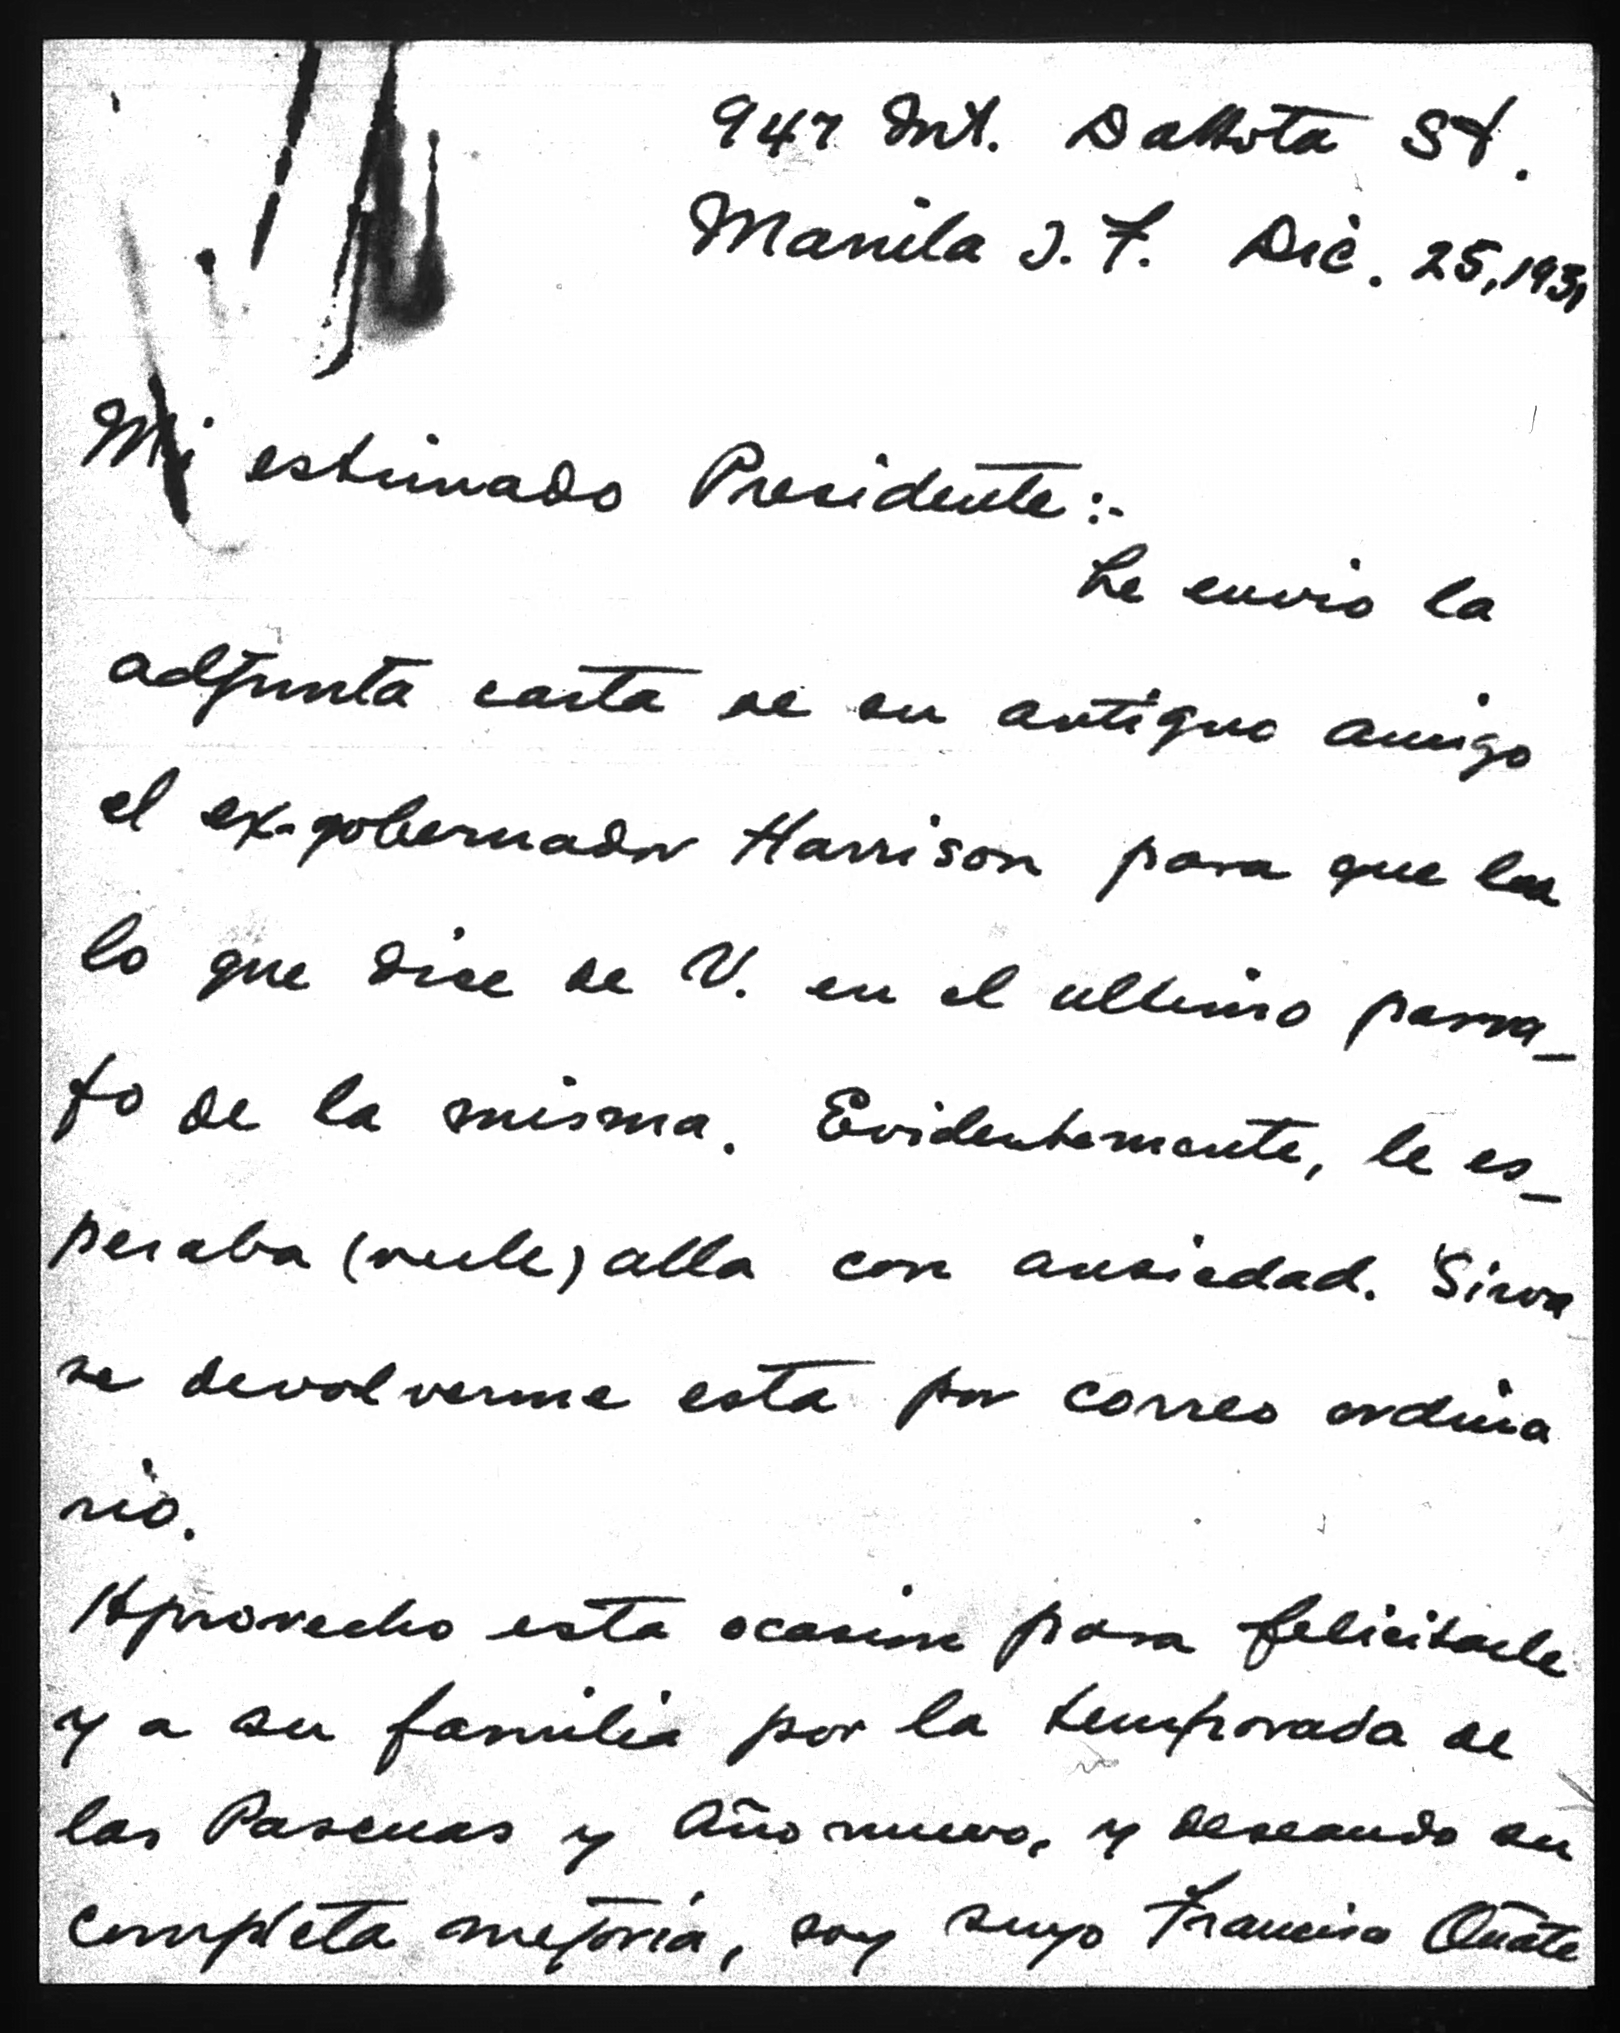 947 Int. Dakota St.
Manila I. F. Dic. 25, 1931
Mi estimado Presidente:-
Le envio la
adjunta carta de su antiguo amigo
el ex-gobernador Harrison para que lea
lo que dice de V. en el ultimo parra-
fo de la misma. Evidentemente, le es-
peraba (verle) alla con ansiedad. Sirva
se devolverme esta por correo ordina
rio.
Aprovecho esta ocasion para felicitarle
y a su familia por la temporada de
las Pascuas y Año nuevo, y deseando su
completa mejoría, soy suyo Francisco Oñate